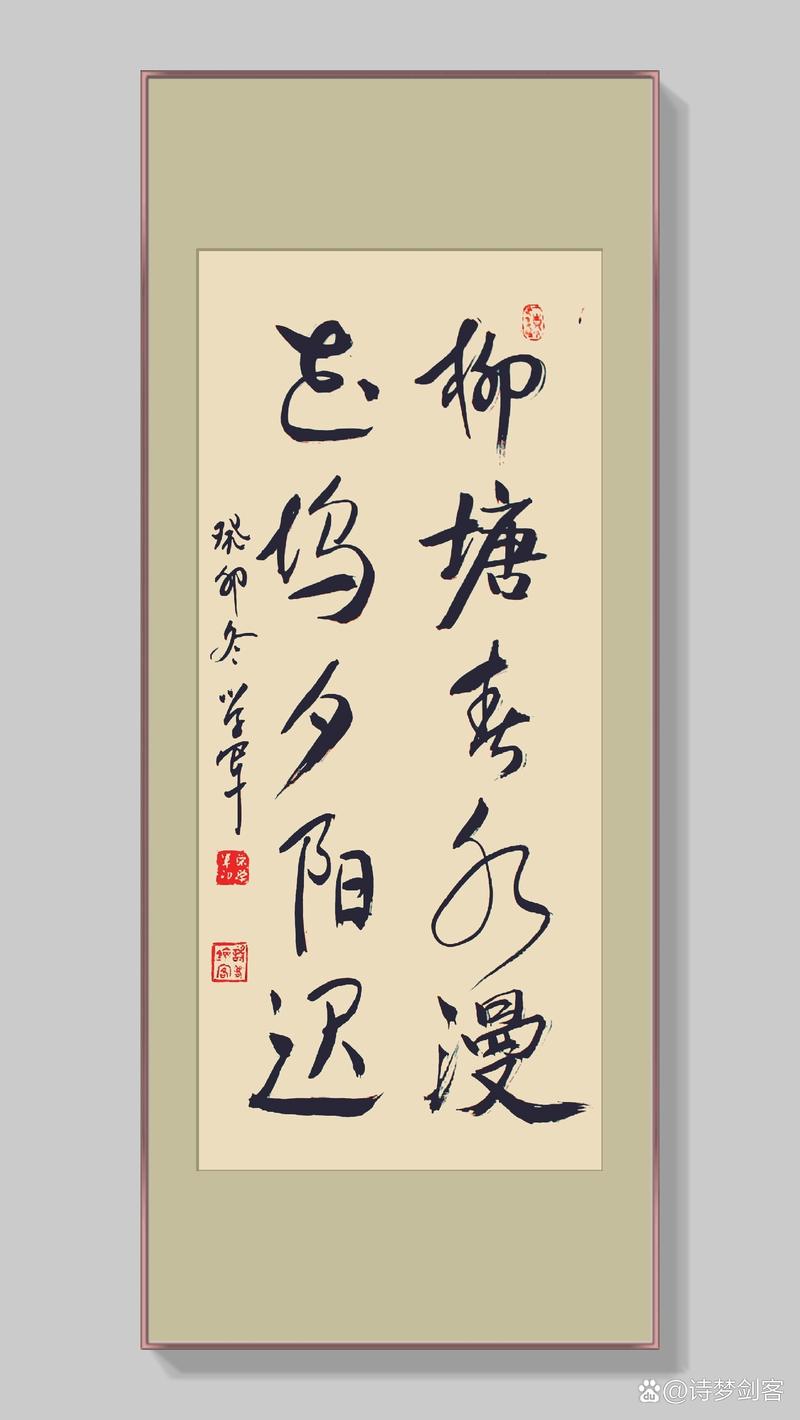 柳塘春水漫
花坞夕阳迟
癸卯冬学军
du @诗梦剑客